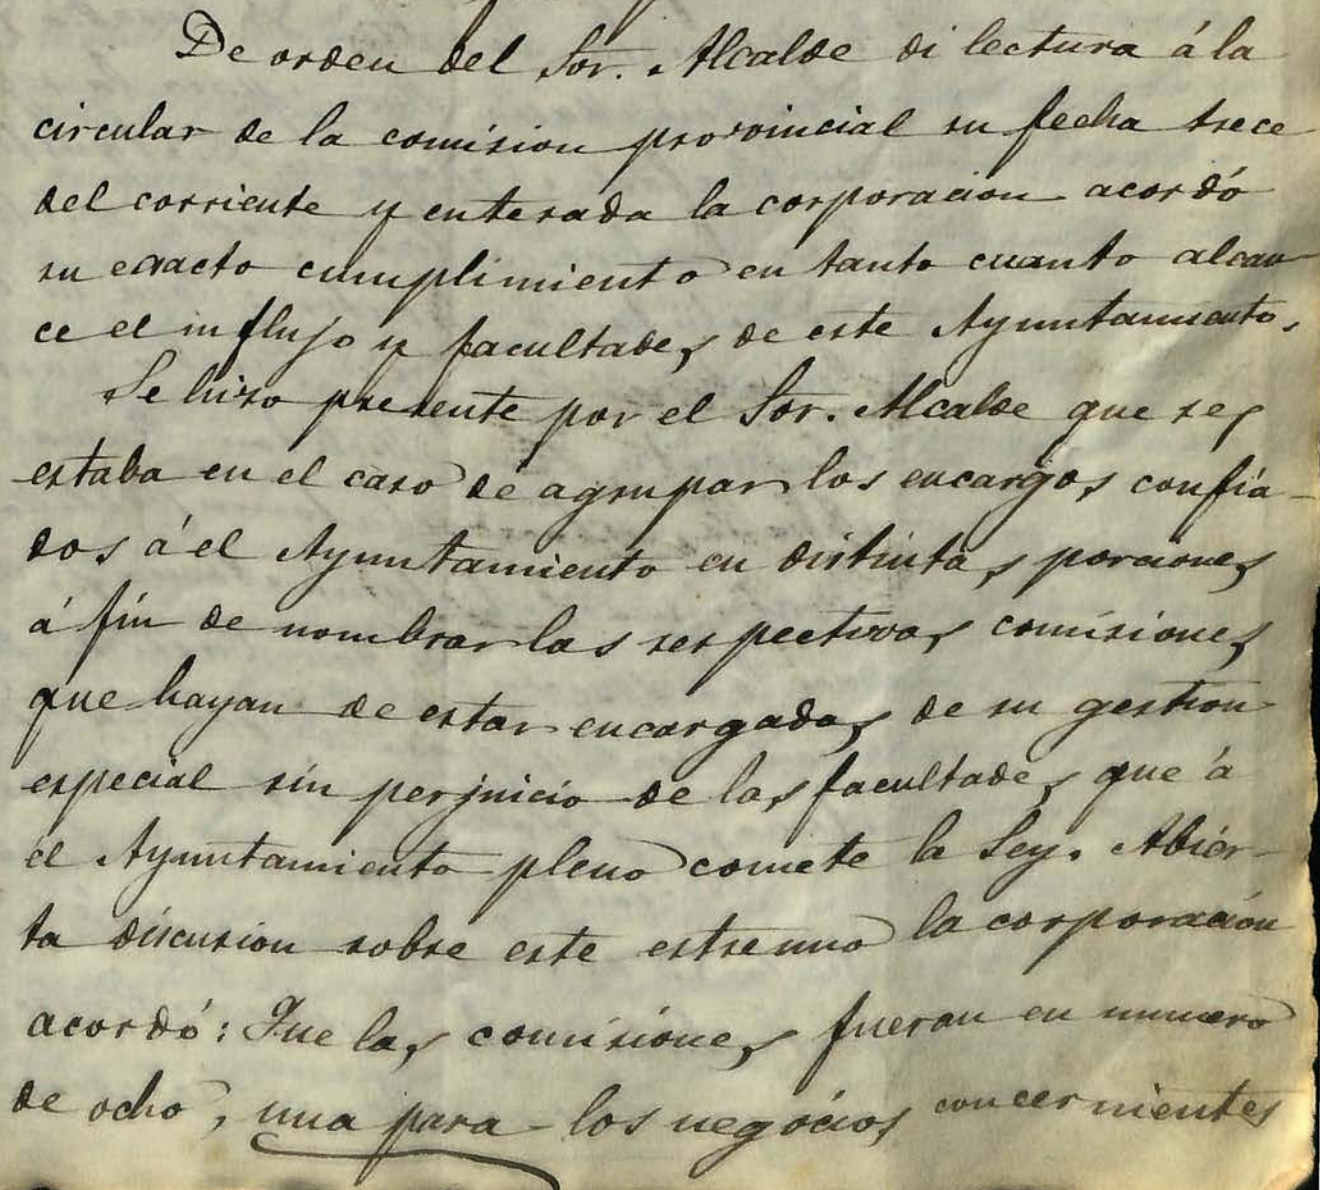 De orden del Sor. Alcalde di lectura á la
circular de la comision provincial su fecha trece
del corriente y enterada la corporacion acordó
su exacto cumplimiento en tanto cuanto alcan
ce el influjo y facultades de este Ayuntamiento.
Se hizo presente por el Sor. Alcalde que se
estaba en el caso de agrupar los encargos confia-
dos á el Ayuntamiento en distintas porciones
á fin de nombrar las respectivas comisiones
que hayan de estar encargadas de su gestion
especial sin perjuicio de las facultades que á
el Ayuntamiento pleno comete la Ley. Abier-
ta discusion sobre este estremo la corporacion
acordó: Que las comisiones fueran en numero
de ocho, una para los negocios concernientes